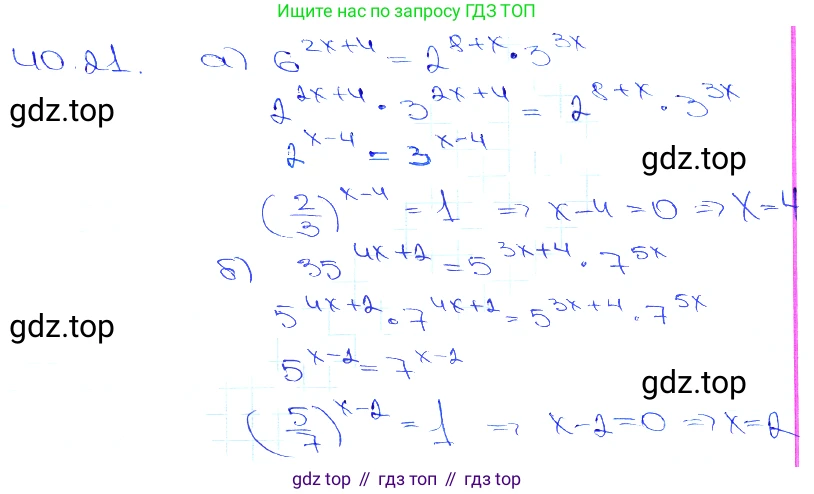 Ищите нас по запросу ГДЗ ТОП
40.21. а) 6^{2x+4} = 2^{8+x} · 3^{3x}
2^{2x+4} · 3^{2x+4} = 2^{8+x} · 3^{3x}
gdz.top
2^{x-4} = 3^{x-4}
gdz.top
(2/3)^{x-4} = 1 => x-4=0 => x=4
б) 35^{4x+2} = 5^{3x+4} · 7^{5x}
5^{4x+2} · 7^{4x+2} = 5^{3x+4} · 7^{5x}
gdz.top
5^{x-2} = 7^{x-2}
gdz.top
(5/7)^{x-2} = 1 => x-2=0 => x=2
gdz top // гдз топ // gdz top